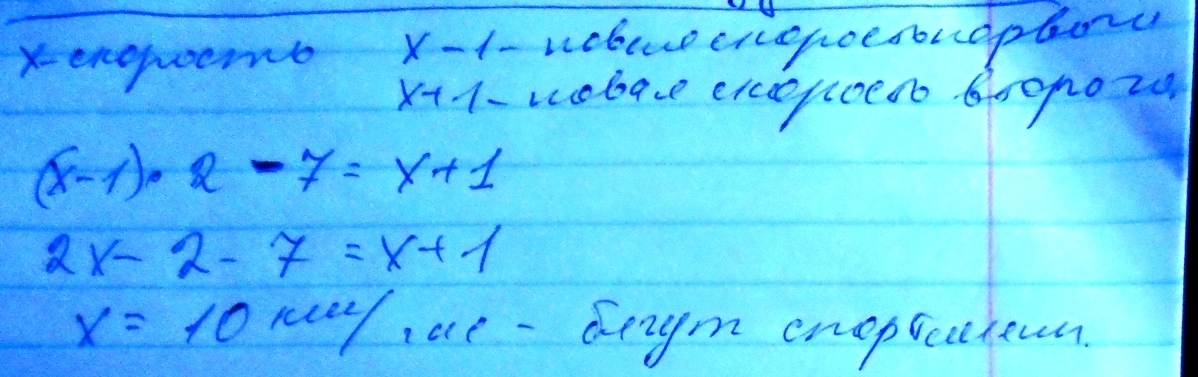 x-скорость x-1- новая скорость первого
x+1- новая скорость второго
(x-1)· 2 - 7 = x+1
2x- 2 - 7 = x+1
x = 10 км/час - бегут спортсмены.